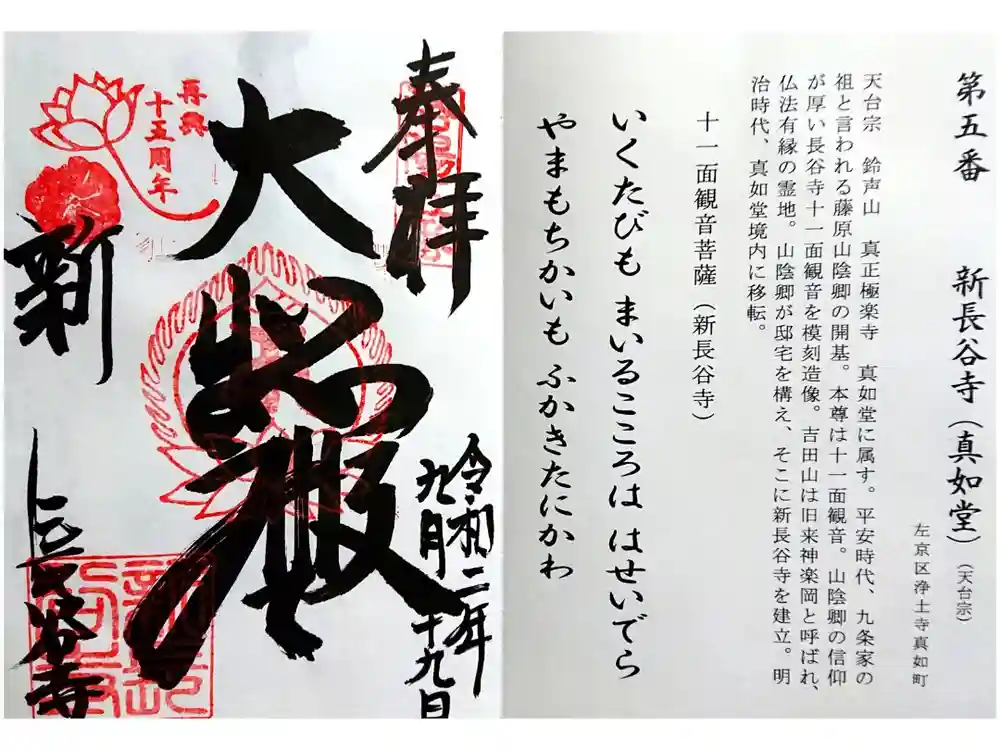 第五番 新長谷寺（真如堂）（天台宗）
左京区浄土寺真如町
天台宗 鈴声山 真正極楽寺 真如堂に属す。平安時代、九条家の
祖と言われる藤原山陰卿の開基。本尊は十一面観音。山陰卿の信仰
が厚い長谷寺十一面観音を模刻造像。吉田山は旧来神楽岡と呼ばれ、
仏法有縁の霊地。山陰卿が邸宅を構え、そこに新長谷寺を建立。明
治時代、真如堂境内に移転。
十一面観音菩薩（新長谷寺）
いくたびも まいるこころは はせいでら
やまもちかいも ふかきたにかわ
奉拝
令和二年
九月十九日
大悲殿
再興
十五周年
新
長谷寺